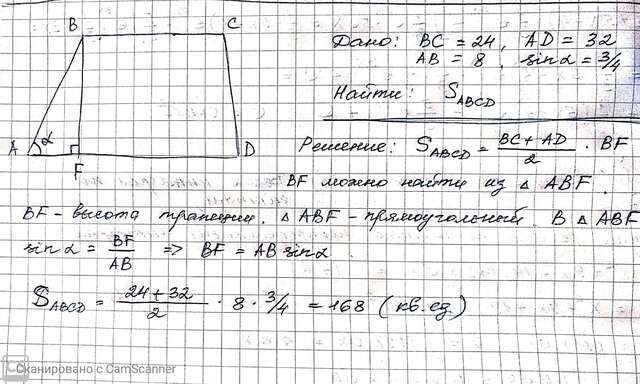 B C
Дано: BC = 24, AD = 32
AB = 8, sinα = 3/4
Найти: S_ABCD
A α F D
Решение: S_ABCD = (BC + AD)/2 · BF
BF можно найти из △ ABF.
BF - высота трапеции. △ ABF - прямоугольный. В △ ABF
sinα = BF/AB => BF = AB sinα
S_ABCD = (24 + 32)/2 · 8 · 3/4 = 168 (кв. ед)
CS Сканировано с CamScanner